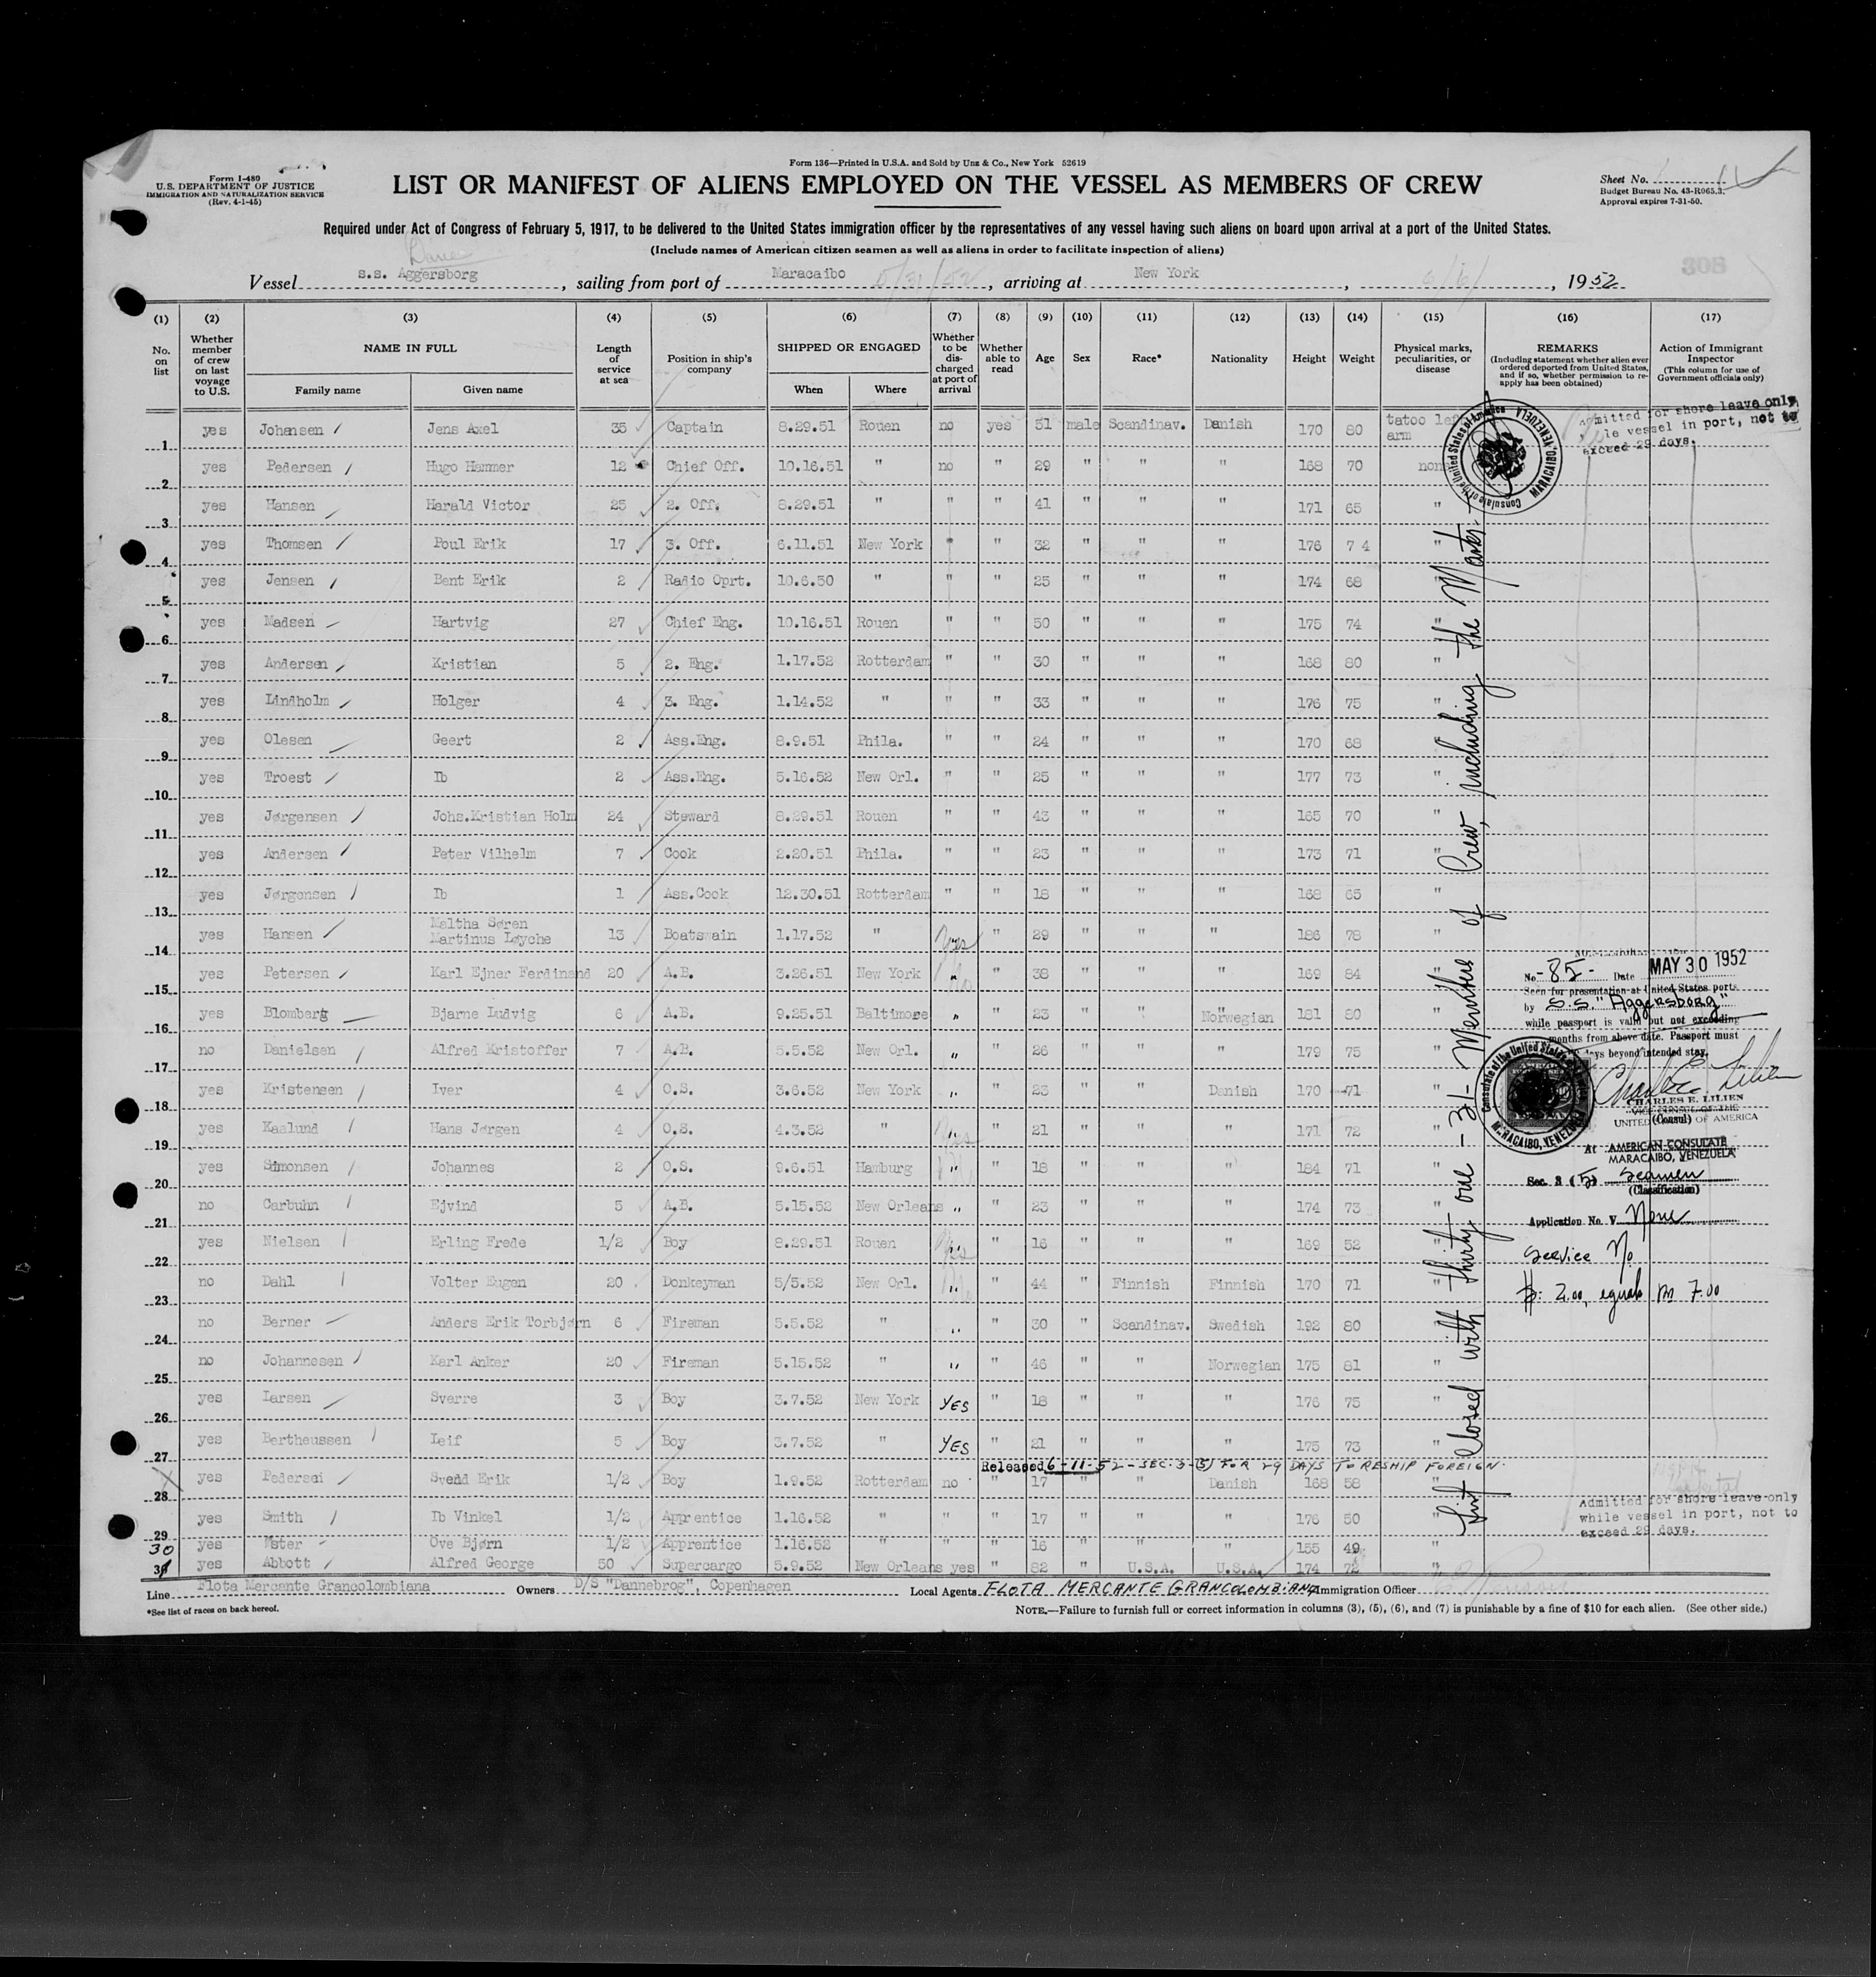 Form 136—Printed in U.S.A. and Sold by Unz & Co., New York 52619
Form I-480
U.S. DEPARTMENT OF JUSTICE
IMMIGRATION AND NATURALIZATION SERVICE
(Rev. 4-1-45)
LIST OR MANIFEST OF ALIENS EMPLOYED ON THE VESSEL AS MEMBERS OF CREW
Sheet No. 1
Budget Bureau No. 43-R065.3.
Approval expires 7-31-50.
Required under Act of Congress of February 5, 1917, to be delivered to the United States immigration officer by the representatives of any vessel having such aliens on board upon arrival at a port of the United States.
(Include names of American citizen seamen as well as aliens in order to facilitate inspection of aliens)
Dane
308
Vessel s.s. Aggersborg, sailing from port of Maracaibo 5/31/52, arriving at New York, 6/6/, 1952
(1) (2) (3) (4) (5) (6) (7) (8) (9) (10) (11) (12) (13) (14) (15) (16) (17)
No. on list
Whether member of crew on last voyage to U.S.
NAME IN FULL
Family name
Given name
Length of service at sea
Position in ship's company
SHIPPED OR ENGAGED
When
Where
Whether to be discharged at port of arrival
Whether able to read
Age
Sex
Race*
Nationality
Height
Weight
Physical marks, peculiarities, or disease
REMARKS
(Including statement whether alien ever ordered deported from United States, and if so, whether permission to reapply has been obtained)
Action of Immigrant Inspector
(This column for use of Government officials only)
1 yes Johansen Jens Axel 35 Captain 8.29.51 Rouen no yes 51 male Scandinav. Danish 170 80 tatoo arm
2 yes Pedersen Hugo Hammer 12 Chief Off. 10.16.51 " no " 29 " " " 168 70
3 yes Hansen Harald Victor 25 2. Off. 8.29.51 " " " 41 " " " 171 65 "
4 yes Thomsen Poul Erik 17 3. Off. 6.11.51 New York " " 32 " " " 176 7 4 "
5 yes Jensen Bent Erik 2 Radio Oprt. 10.6.50 " " " 25 " " " 174 68 "
6 yes Madsen Hartvig 27 Chief Eng. 10.16.51 Rouen " " 50 " " " 175 74 "
7 yes Andersen Kristian 5 2. Eng. 1.17.52 Rotterdam " " 30 " " " 168 80 "
8 yes Lindholm Holger 4 3. Eng. 1.14.52 " " " 33 " " " 176 75 "
9 yes Olesen Geert 2 Ass.Eng. 8.9.51 Phila. " " 24 " " " 170 68 "
10 yes Troest Ib 2 Ass.Eng. 5.16.52 New Orl. " " 25 " " " 177 73 "
11 yes Jørgensen Johs.Kristian Holm 24 Steward 8.29.51 Rouen " " 43 " " " 165 70 "
12 yes Andersen Peter Vilhelm 7 Cook 2.20.51 Phila. " " 23 " " " 173 71 "
13 yes Jørgensen Ib 1 Ass.Cook 12.30.51 Rotterdam " " 18 " " " 168 65 "
14 yes Hansen Maltha Søren Martinus Løyche 13 Boatswain 1.17.52 " yes " 29 " " " 186 78 "
15 yes Petersen Karl Ejner Ferdinand 20 A.B. 3.26.51 New York " " 38 " " " 169 84 "
16 yes Blomberg Bjarne Ludvig 6 A.B. 9.25.51 Baltimore " " 23 " " Norwegian 181 80 "
17 no Danielsen Alfred Kristoffer 7 A.B. 5.5.52 New Orl. " " 26 " " " 179 75 "
18 yes Kristensen Iver 4 O.S. 3.6.52 New York " " 23 " " Danish 170 71 "
19 yes Kaalund Hans Jørgen 4 O.S. 4.3.52 " " " 21 " " " 171 72 "
20 yes Simonsen Johannes 2 O.S. 9.6.51 Hamburg " " 18 " " " 184 71 "
21 no Carbuhn Ejvind 5 A.B. 5.15.52 New Orleans " " 23 " " " 174 73 "
22 yes Nielsen Erling Frede 1/2 Boy 8.29.51 Rouen " " 16 " " " 169 52 "
23 no Dahl Volter Eugen 20 Donkeyman 5/5.52 New Orl. " " 44 " Finnish Finnish 170 71 "
24 no Berner Anders Erik Torbjørn 6 Fireman 5.5.52 " " " 30 " Scandinav. Swedish 192 80 "
25 no Johannesen Karl Anker 20 Fireman 5.15.52 " " " 46 " " Norwegian 175 81 "
26 yes Larsen Sverre 3 Boy 3.7.52 New York YES " 18 " " " 176 75 "
27 yes Bertheussen Leif 5 Boy 3.7.52 " YES " 21 " " " 175 73 "
Released 6-11-52 - SEC. 3-(5) FOR 29 DAYS TO RESHIP FOREIGN.
28 yes Pedersen Svend Erik 1/2 Boy 1.9.52 Rotterdam no " 17 " " Danish 168 58 "
29 yes Smith Ib Vinkel 1/2 Apprentice 1.16.52 " " " 17 " " " 176 50 "
30 yes Øster Ove Bjørn 1/2 Apprentice 1.16.52 " " " 16 " " " 155 49 "
31 yes Abbott Alfred George 50 Supercargo 5.9.52 New Orleans yes " 82 " U.S.A. U.S.A. 174 72 "
List closed with thirty one - 31 - Members of Crew, including the Master.
Consulate of the United States of America
MARACAIBO, VENEZUELA
Admitted for shore leave only,
while vessel in port, not to
exceed 29 days.
No. 85 - Date MAY 30 1952
Seen for presentation at United States ports
by S.S. "Aggersborg"
while passport is valid but not exceeding
months from above date. Passport must
days beyond intended stay.
Charles E. Lilien
CHARLES E. LILIEN
VICE CONSUL OF THE
UNITED STATES OF AMERICA
(Consul)
At AMERICAN CONSULATE
MARACAIBO, VENEZUELA
Sec. 3 (5) Seamen
(Classification)
Application No. V None
Service No.
$: 2.00, equals Bs 7.00
Consulate of the United States
MARACAIBO, VENEZUELA
Admitted for shore leave only
while vessel in port, not to
exceed 29 days.
Line Flota Mercante Grancolombiana Owners D/S "Dannebrog", Copenhagen Local Agents FLOTA MERCANTE GRANCOLOMBIANA Immigration Officer
*See list of races on back hereof.
NOTE.—Failure to furnish full or correct information in columns (3), (5), (6), and (7) is punishable by a fine of $10 for each alien. (See other side.)